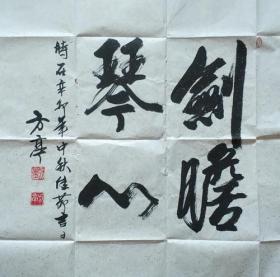 劍膽
琴心
時在辛卯年中秋佳節吉日
方亭